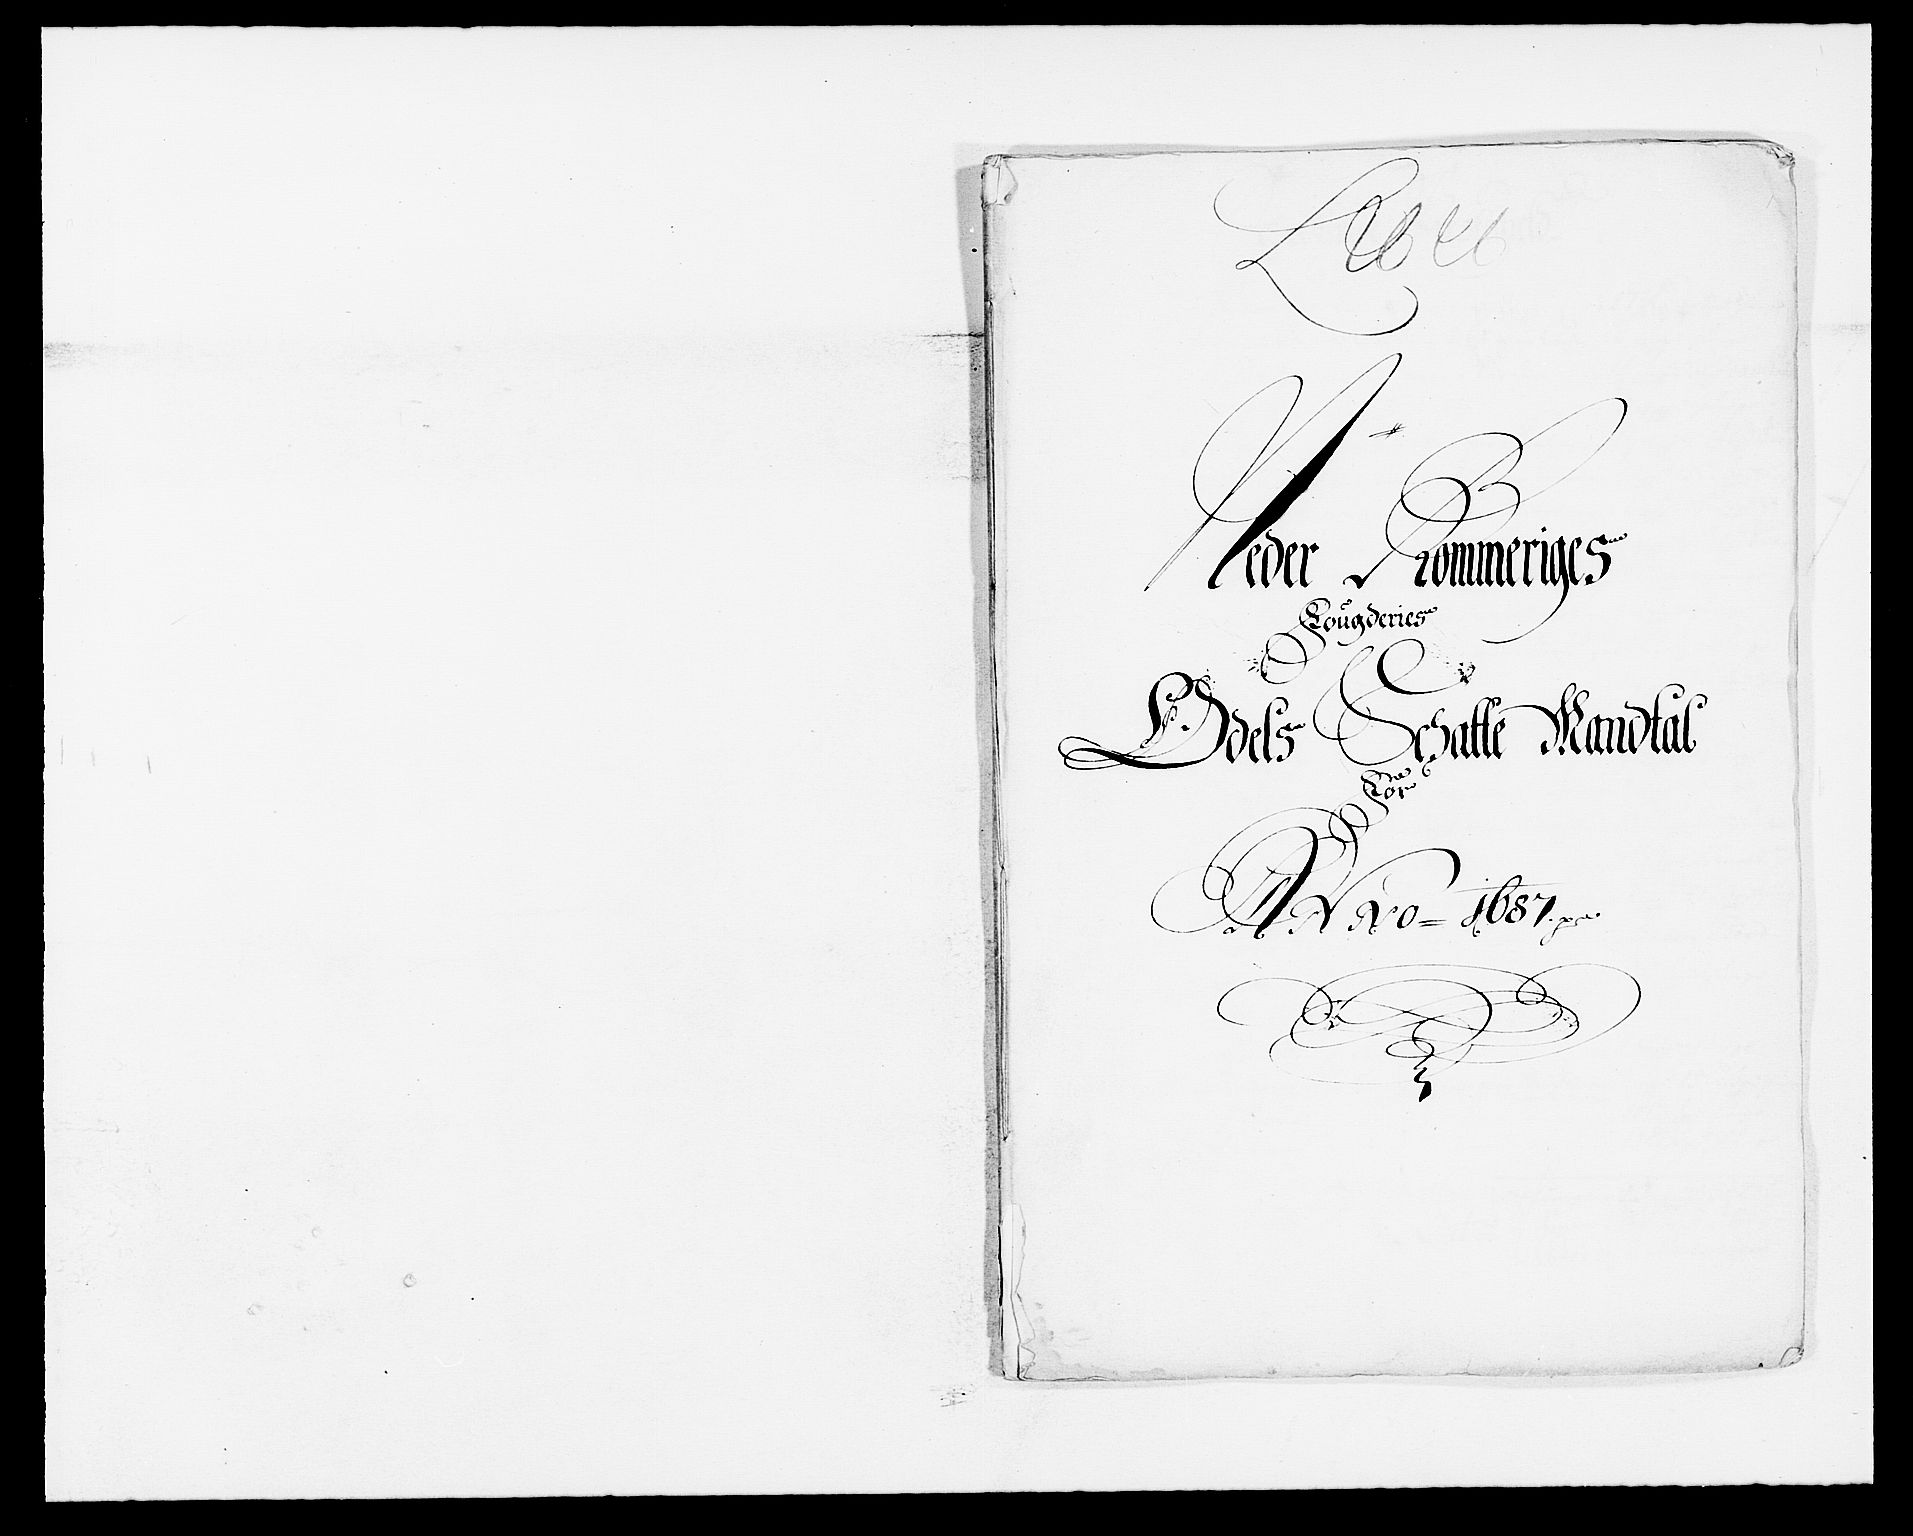 Neder Rommeriges
Fougderies
Odels Schatte Mandtal
For
ANNO = 1687.